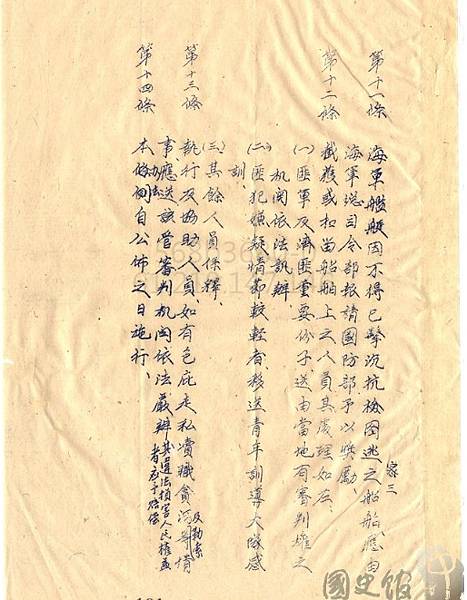 第十一條 海軍艦艇因不得已擊沉抗檢图逃之船舶應由
海軍总司令部報請國防部予以獎勵、
第十二條 截獲或扣留船舶上之人員其處理如左、
(一)匪軍及濟匪重要份子送由當地有審判權之
机関依法訊辦
(二)匪犯嫌疑情節較輕者、移送青年訓導大隊感
訓、
(三)其餘人員保釋、
第十三條 執行及協助人員、如有包庇走私瀆職貪污及勒索等情
事、應送該管審判机関依法嚴辦其違法損害人民權益
者應予賠償
第十四條 本办法自公佈之日施行、
國史館